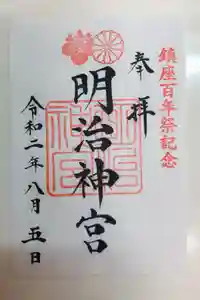 鎮座百年祭記念
奉拝
明治神宮
令和二年八月五日